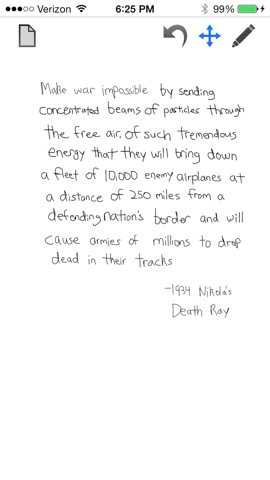 Verizon 6:25 PM 99%
Make war impossible by sending
concentrated beams of particles through
the free air, of such tremendous
energy that they will bring down
a fleet of 10,000 enemy airplanes at
a distance of 250 miles from a
defending nation's border and will
cause armies of millions to drop
dead in their tracks
-1934 Nikola's
Death Ray